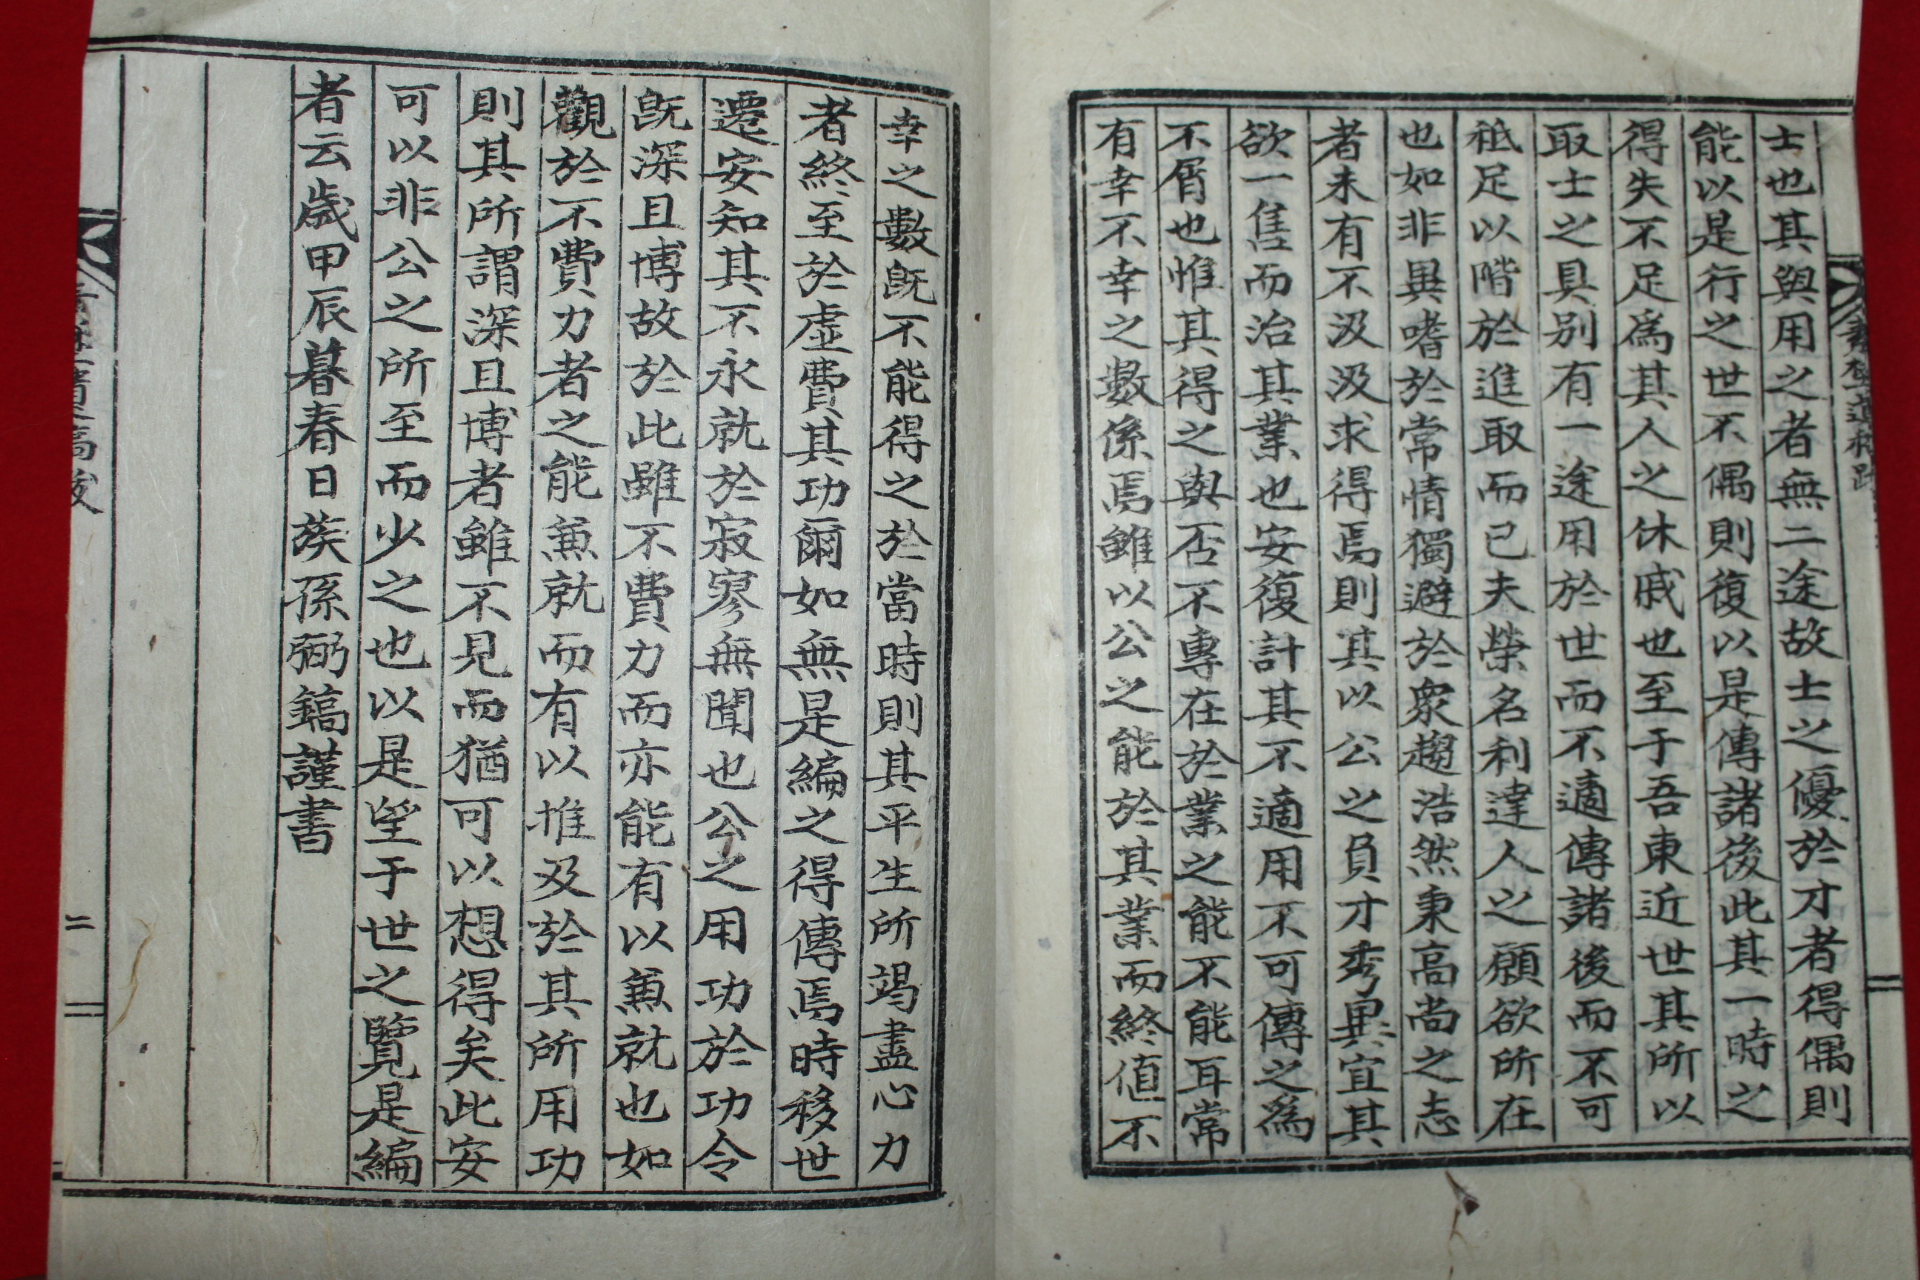 士也其與用之者無二途故士之優於才者得偶則
能以是行之世不偶則復以是傳諸後此其一時之
得失不足爲其人之休戚也至于吾東近世其所以
取士之具别有一途用於世而不適傳諸後而不可
祗足以階於進取而已夫榮名利達人之願欲所在
也如非異嗜於常情獨避於衆趨浩然秉高尚之志
者未有不汲汲求得焉則其以公之負才秀異宜其
欲一售而治其業也安復計其不適用不可傳之爲
不屑也惟其得之與否不專在於業之能不能耳常
有幸不幸之數係焉雖以公之能於其業而終値不
幸之數旣不能得之於當時則其平生所竭盡心力
者終至於虛費其功爾如無是編之得傳焉時移世
遷安知其不永就於寂寥無聞也公之用功於功令
旣深且博故於此雖不費力而亦能有以兼就也如
觀於不費力者之能兼就而有以推及於其所用功
則其所謂深且博者雖不見而猶可以想得矣此安
可以非公之所至而少之也以是望于世之覽是編
者云歲甲辰暮春日族孫弼鎬謹書
遺稿跋
二